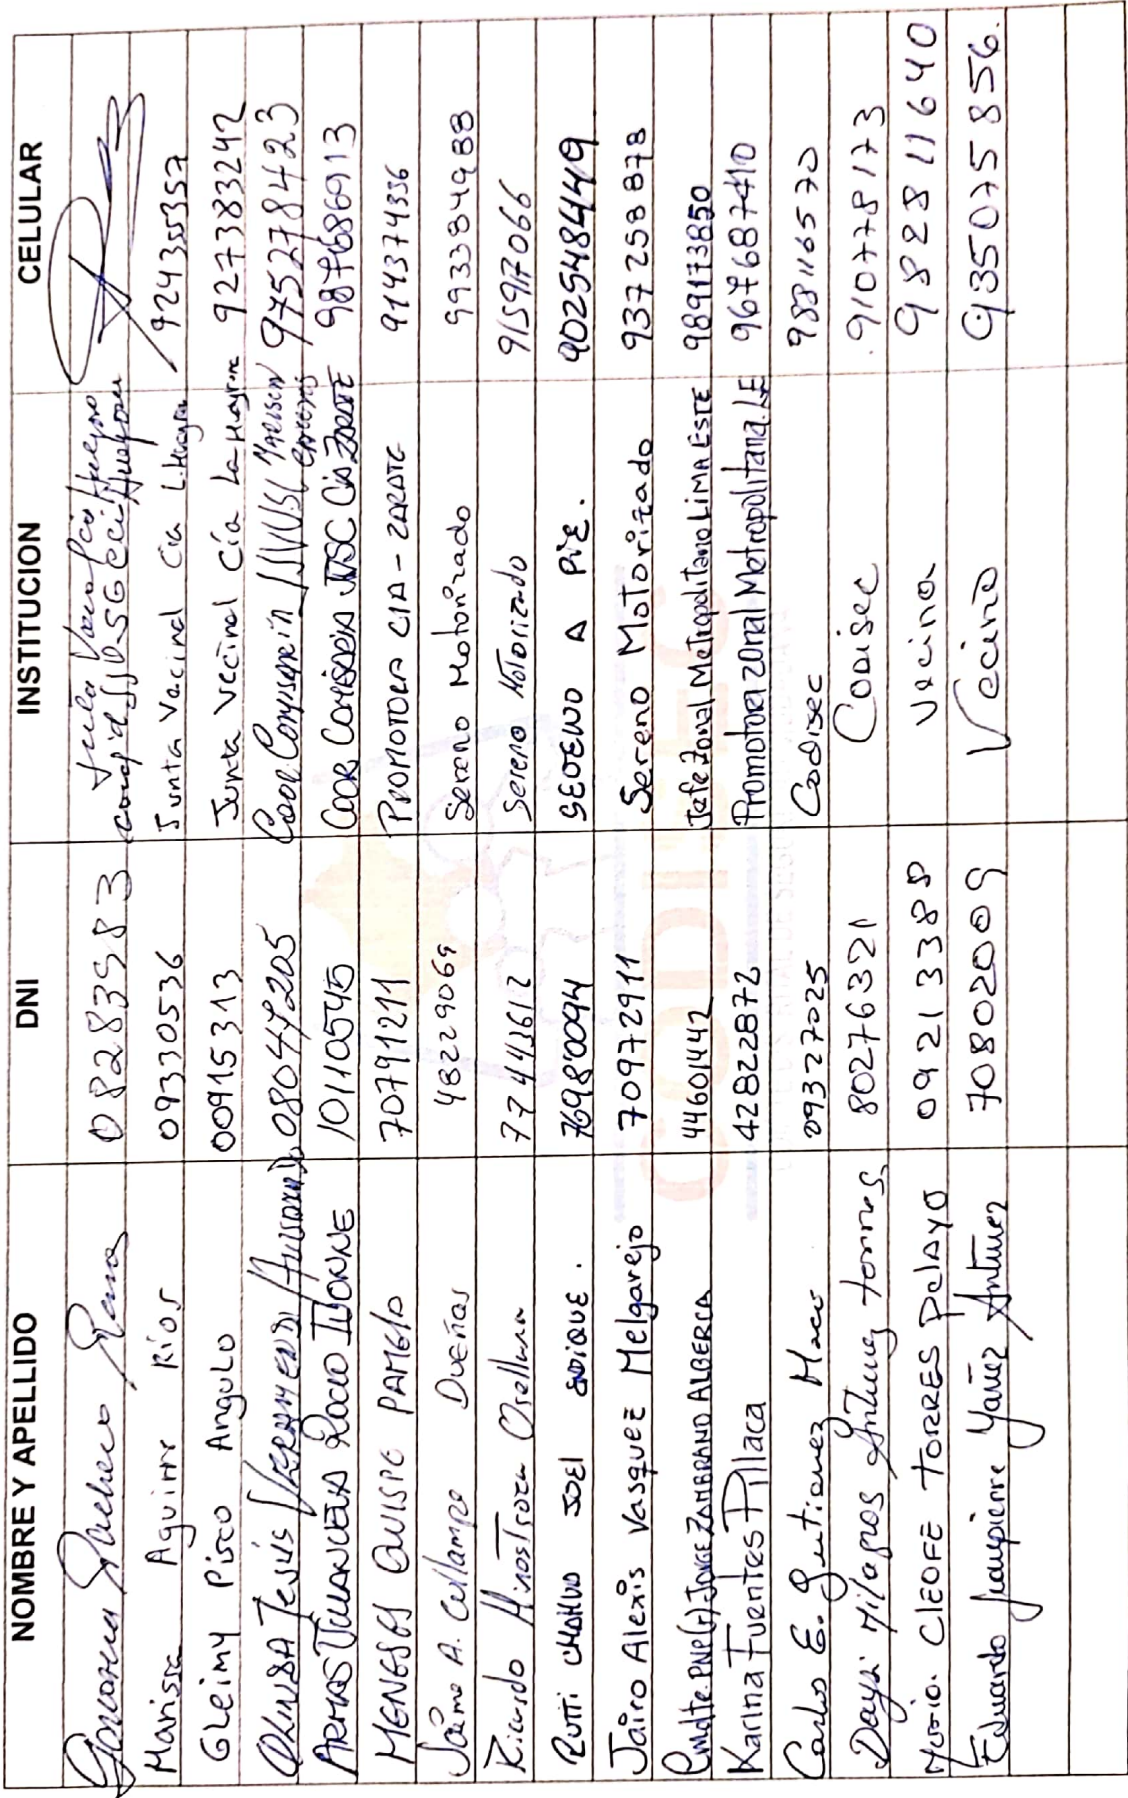 NOMBRE Y APELLIDO DNI INSTITUCION CELULAR
08283983
Marissa Aguirre Ríos 09330536 Junta Vecinal Cia 924355357
Gleimy Pisco Angulo 00915313 Junta Vecinal Cía La Huayrona 927383242
Jesús 08047205 975278423
ARMAS ROCIO IVONNE 10110545 COOR COMISARIA JVSC Cia ZARATE 987686913
MENESES QUISPE PAMELA 70791211 PROMOTORA CIA - ZARATE 914374336
Jaime A. Cullampe Dueñas 48229069 Sereno Motorizado 993384988
Ricardo Hinostroza Orellana 77443612 Sereno Motorizado 915917066
Rutti CHAHUD JOEL ENRIQUE. 76980094 SEREMO A PIE. 902548449
Jairo Alexis Vasquez Melgarejo 70972911 Sereno Motorizado 937258878
Cmdte. PNP (r) JORGE ZAMBRANO ALBERCA 44601442 Jefe Zonal Metropolitano LIMA ESTE 989173850
Karina Fuentes Pillaca 42822872 Promotora zonal Metropolitana. LE 967687410
Carlos E. Gutierrez 09327025 Codisec 988116570
Daysi Milagros Antunez torres 80276321 Codisec 910778173
CLEOFE TORRES PelAYO 09213388 Vecina 982811640
Eduardo Jeanpierre Yañez Antunez 70802009 Vecino 935075856.